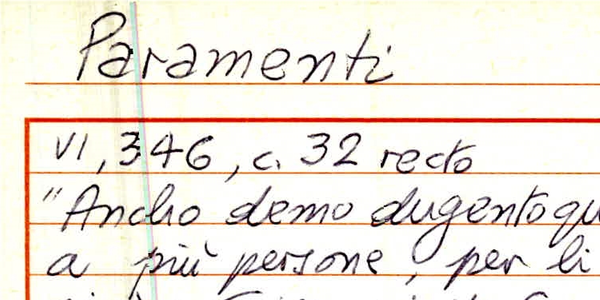 Paramenti
VI, 346, c. 32 recto
"Ancho demo dugento
a più persone, per li